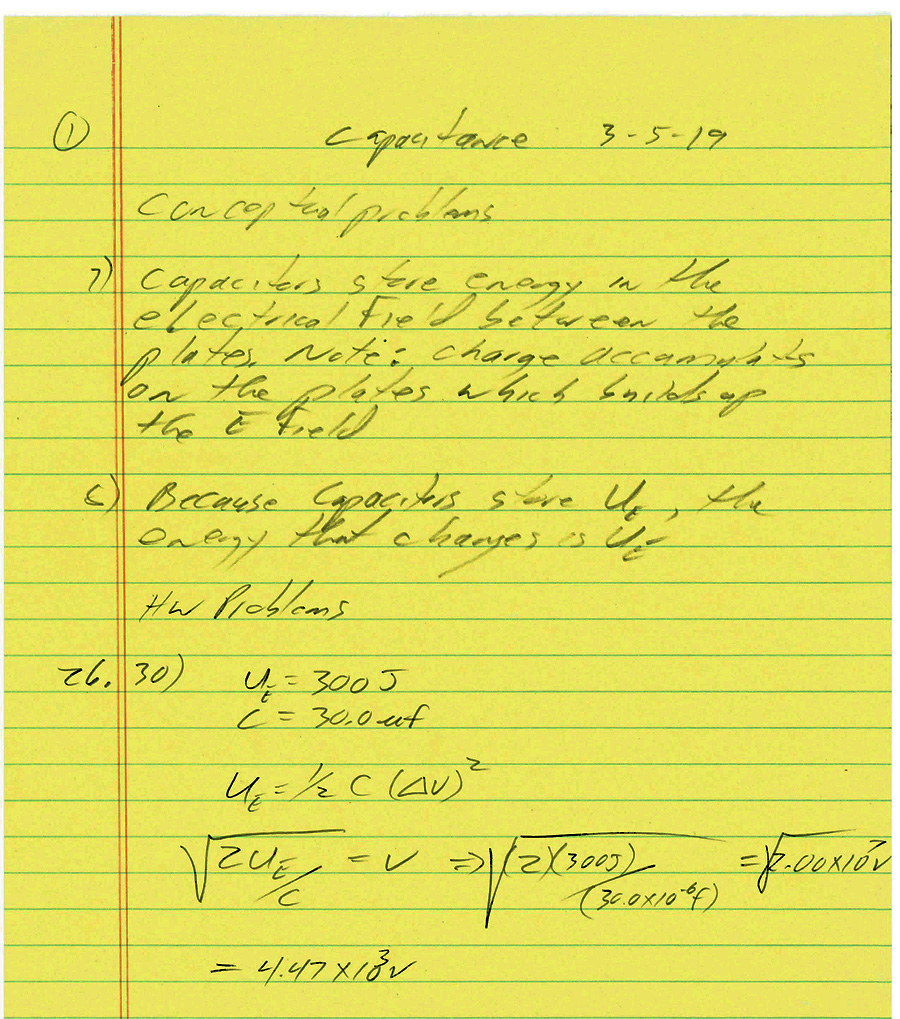 ① Capacitance 3-5-19
Conceptual problems
7) Capacitors store energy in the
electrical Field between the
plates. Note: charge accumulats
on the plates which builds up
the E Field
6) Because Capacitors store U_E, the
energy that changes is U_E
HW Problems
26. 30) U_E = 300J
C = 30.0 uf
U_E = 1/2 C (ΔV)²
√(2U_E/C) = V => √((2)(300J)/(30.0x10⁻⁶f)) = √2.00x10⁷v
= 4.47 x10³v